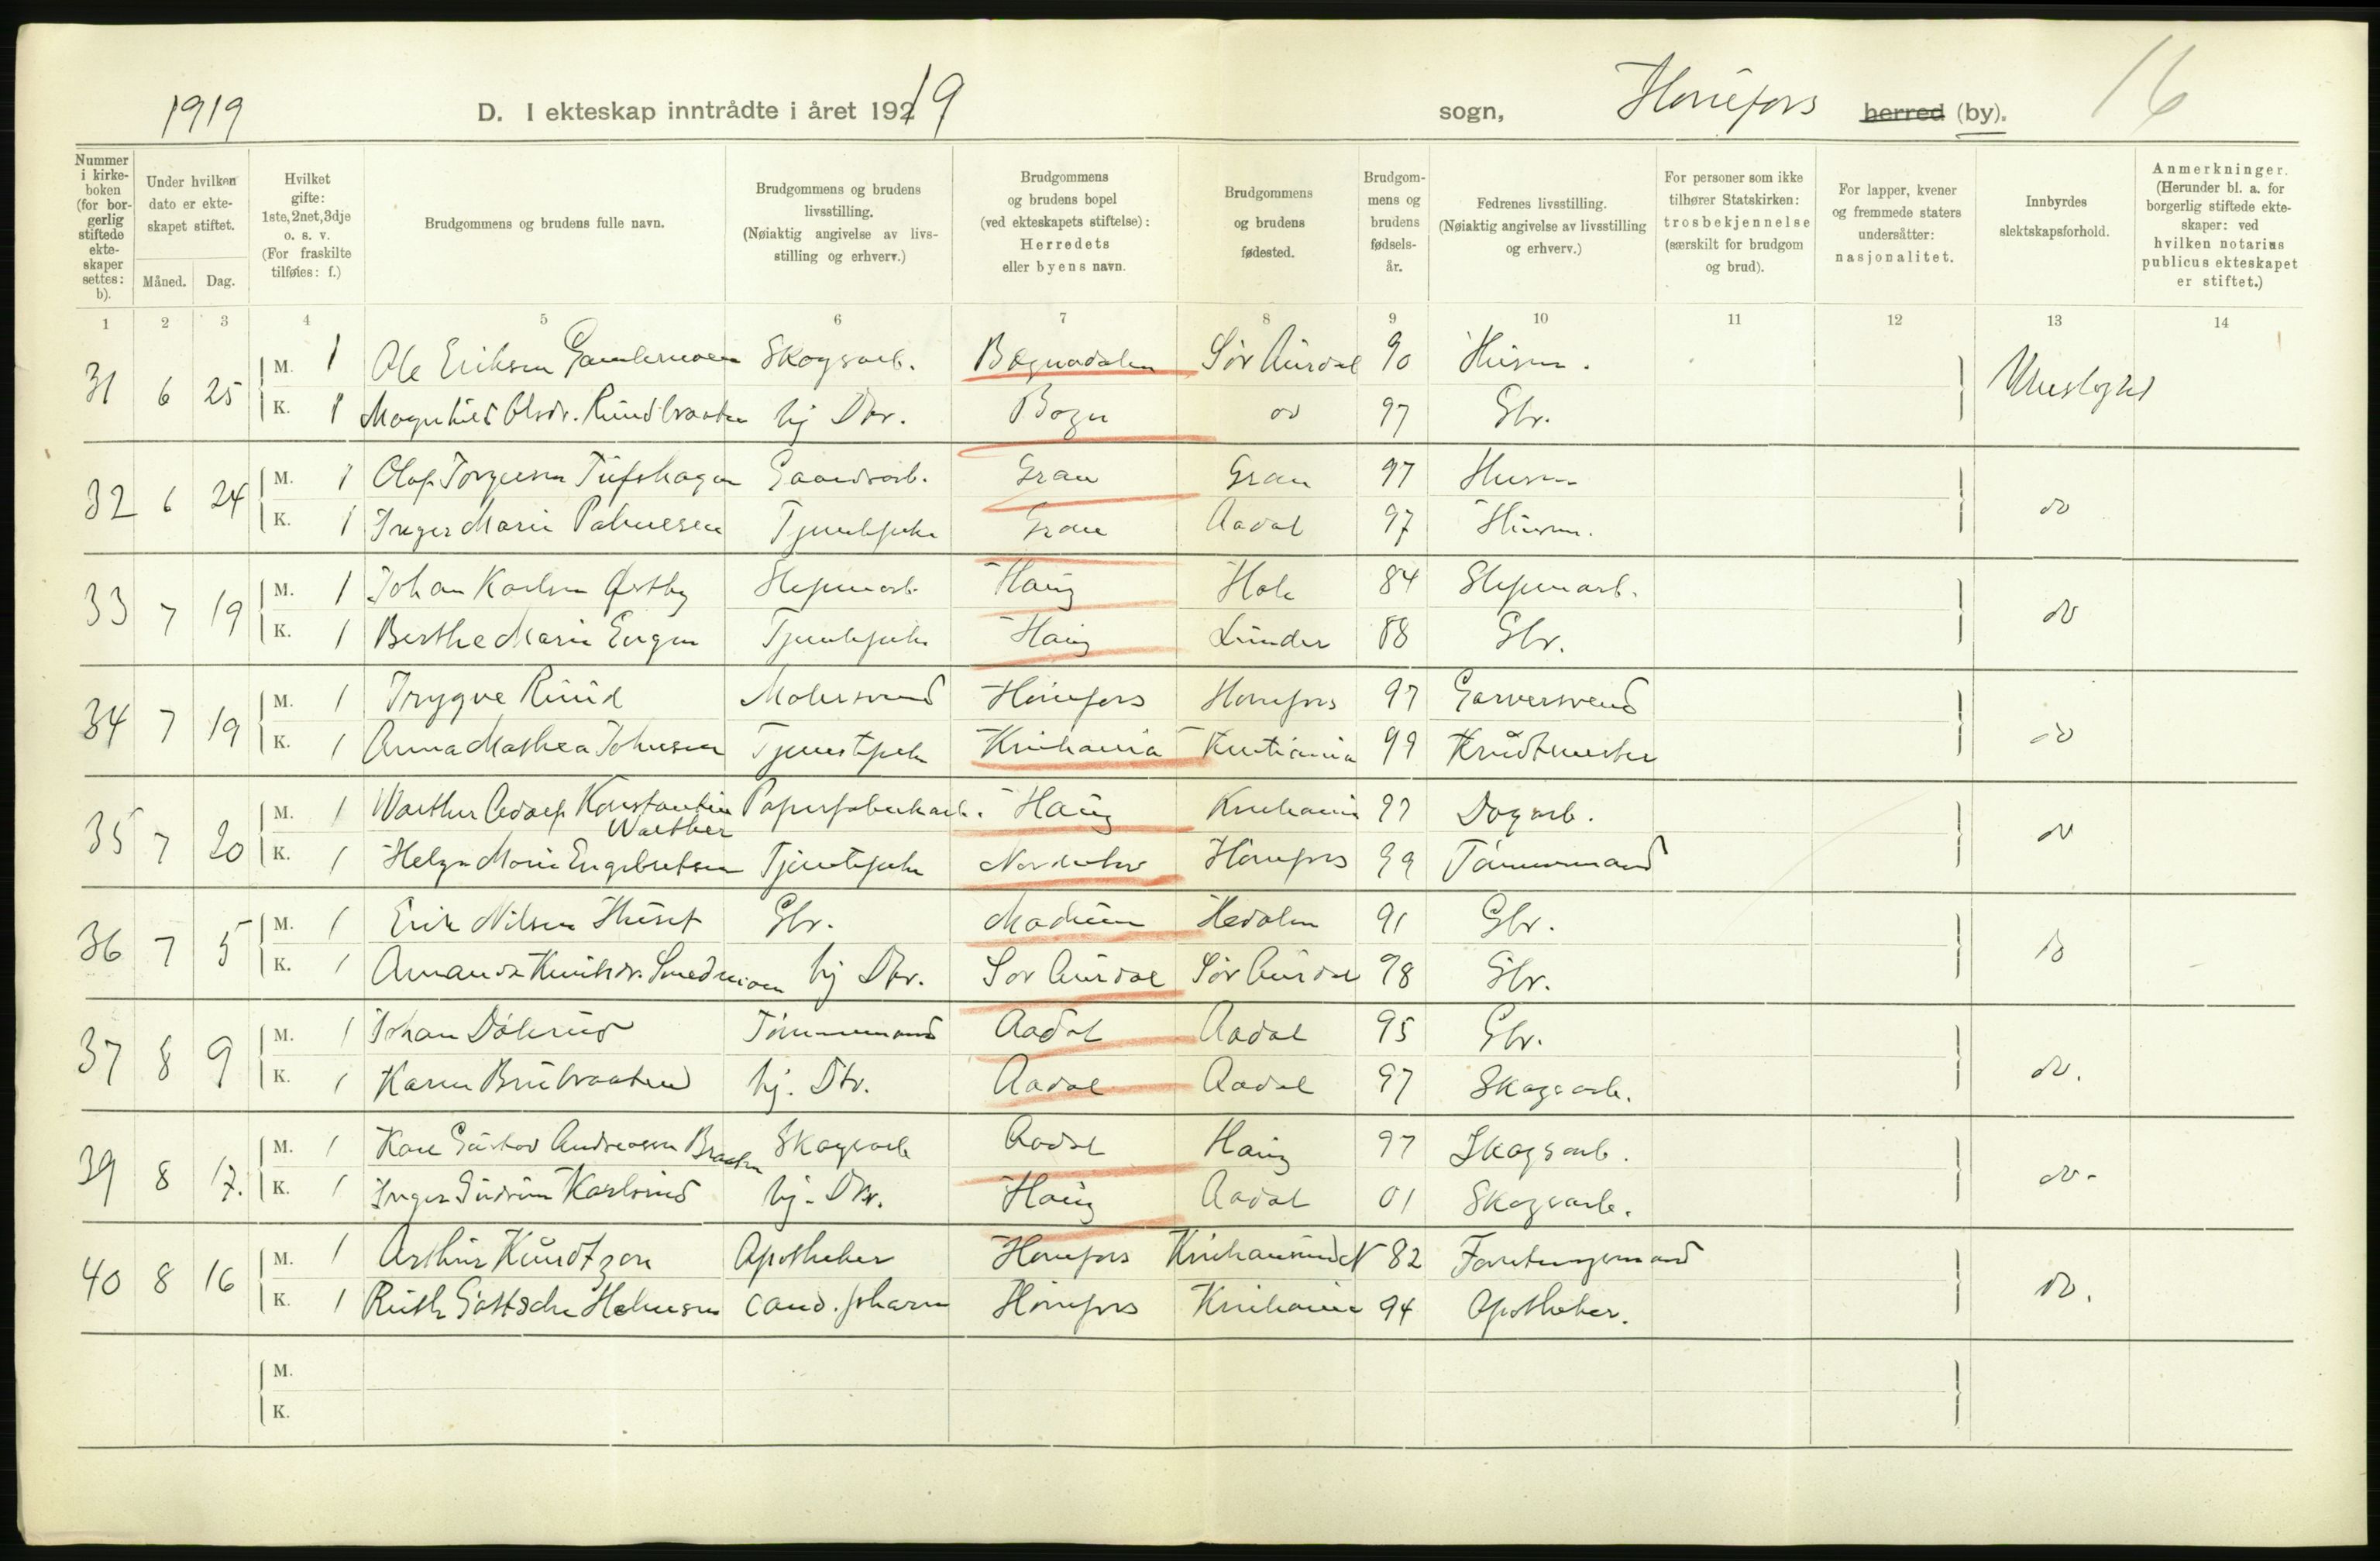 1919 D. I ekteskap inntrådte i året 1919 sogn, Hønefoss herred (by). 16
Nummer i kirkeboken (for borgerlig stiftede ekteskaper settes: b).
Under hvilken dato er ekteskapet stiftet.
Måned. Dag.
Hvilket gifte: 1ste, 2net, 3dje o. s. v. (For fraskilte tilføies: f.)
Brudgommens og brudens fulle navn.
Brudgommens og brudens livsstilling. (Nøiaktig angivelse av livsstilling og erhverv.)
Brudgommens og brudens bopel (ved ekteskapets stiftelse): Herredets eller byens navn.
Brudgommens og brudens fødested.
Brudgommens og brudens fødselsår.
Fedrenes livsstilling. (Nøiaktig angivelse av livsstilling og erhverv.)
For personer som ikke tilhører Statskirken: trosbekjennelse (særskilt for brudgom og brud).
For lapper, kvener og fremmede staters undersåtter: nasjonalitet.
Innbyrdes slektskapsforhold.
Anmerkninger. (Herunder bl. a. for borgerlig stiftede ekteskaper: ved hvilken notarius publicus ekteskapet er stiftet.)
1 2 3 4 5 6 7 8 9 10 11 12 13 14
31 6 25 M. 1 Ole Eriksen Skogsarb. Bægnadalen Sør Aurdal 90 Husm. Ubeslegtet
K. 1 Magnhild Olsdr. Rundbraaten hj Dtr. Bagn do 97 Gbr.
32 6 24 M. 1 Olaf Torgersen Gaardsarb. Gran Gran 97 Husm. do
K. 1 Inger Marie Palmesen Tjenestepike Gran Aadal 97 Husm.
33 7 19 M. 1 Johan Karlsen Østby Sliperiarb. Haug Hole 84 Sliperiarb. do
K. 1 Berthe Marie Engen Tjenestepike Haug Lunder 88 Gbr.
34 7 19 M. 1 Trygve Ruud Malersvend Hønefoss Hønefoss 97 Garversvend do
K. 1 Anna Mathea Johnsen Tjenestepike Kristiania Kristiania 99 Krudtmester
35 7 20 M. 1 Walther Adolf Konstantin Walther Papirfabrikarb. Haug Kristiania 97 Dagarb. do
K. 1 Helga Marie Engebretsen Tjenestepike Norderhov Hønefoss 99 Tømmermand
36 7 5 M. 1 Erik Nilsen Huset Gbr. Modum Hedalen 91 Gbr. do
K. 1 Amanda Knutsdr. Smedmoen hj Dtr. Sør Aurdal Sør Aurdal 98 Gbr.
37 8 9 M. 1 Johan Dölerud Tømmermand Aadal Aadal 95 Gbr. do.
K. 1 Karen Brubraaten hj. Dtr. Aadal Aadal 97 Skogsarb.
39 8 17. M. 1 Kare Gustav Andreasen Braaten Skogsarb Aadal Haug 97 Skogsarb. do.
K. 1 Inger Gudrun Karlsrud hj. Dtr. Haug Aadal 01 Skogsarb.
40 8 16 M. 1 Arthur Kundtzon Apotheker Hønefoss Kristiansund N 82 Forretningsmand do.
K. 1 Ruth Gottsche Helmesen cand. pharm Hønefoss Kristiania 94 Apotheker.
M.
K.